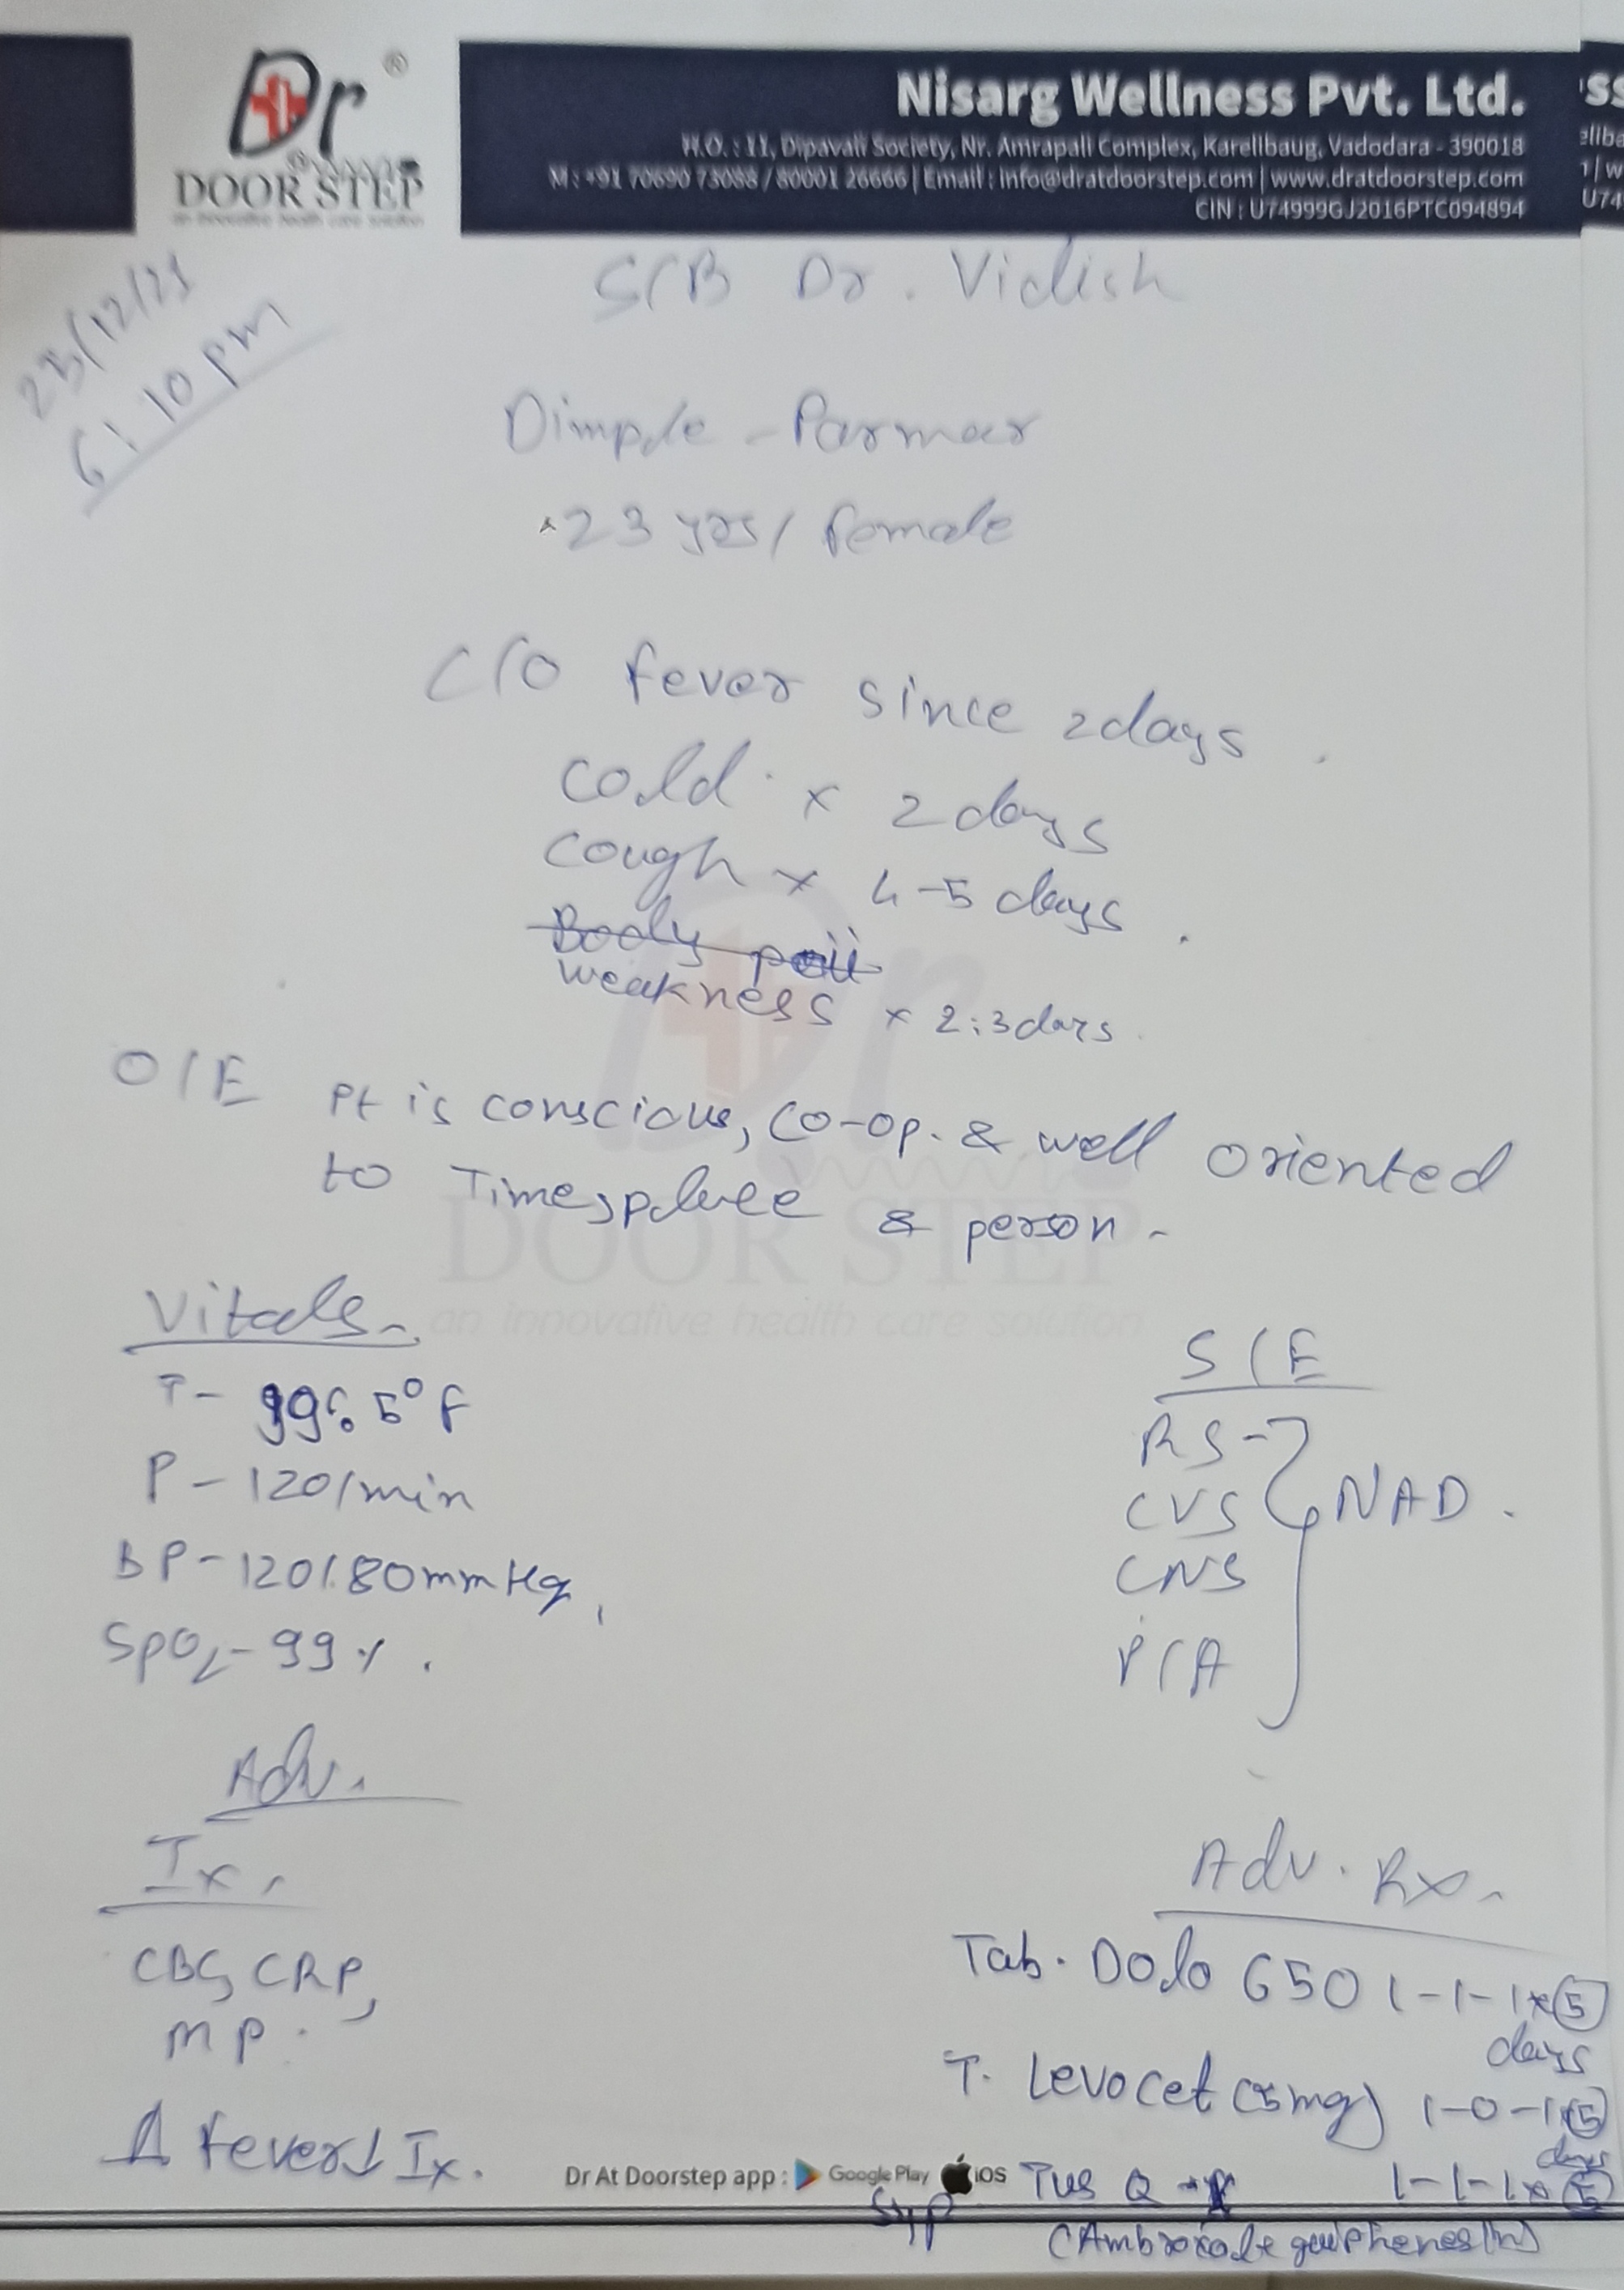 Dr ®
DOOR STEP
an innovative health care solution
Nisarg Wellness Pvt. Ltd.
H.O. : 11, Dipavali Society, Nr. Amrapali Complex, Karelibaug, Vadodara - 390018
M : +91 70690 73088 / 80001 26666 | Email : info@dratdoorstep.com | www.dratdoorstep.com
CIN : U74999GJ2016PTC094894
23/12/21
6:10 pm
S/B Dr. Vidish
Dimple - Parmar
23 yrs / female
C/O fever since 2days.
cold x 2 days
cough x 4-5 days.
Body
weakness x 2-3 days.
O/E Pt is conscious, co-op. & well oriented
to Time, place & person -
DOOR STEP
an innovative health care solution
Vitals -
T - 99.5°F
P - 120/min
BP - 120/80mmHg,
SpO2 - 99%.
S/E
RS -
CVS NAD.
CNS
P/A
Adv.
Ix.
CBC, CRP,
MP.
Δ fever ↓ Ix.
Adv. Rx.
Tab. Dolo 650 1-1-1 x 5
days
T. Levocet (5mg) 1-0-1 x 5
days
Dr At Doorstep app : Google Play iOS
Syp Tus Q - X 1-1-1 x 5
(Ambroxole guiphenesin)